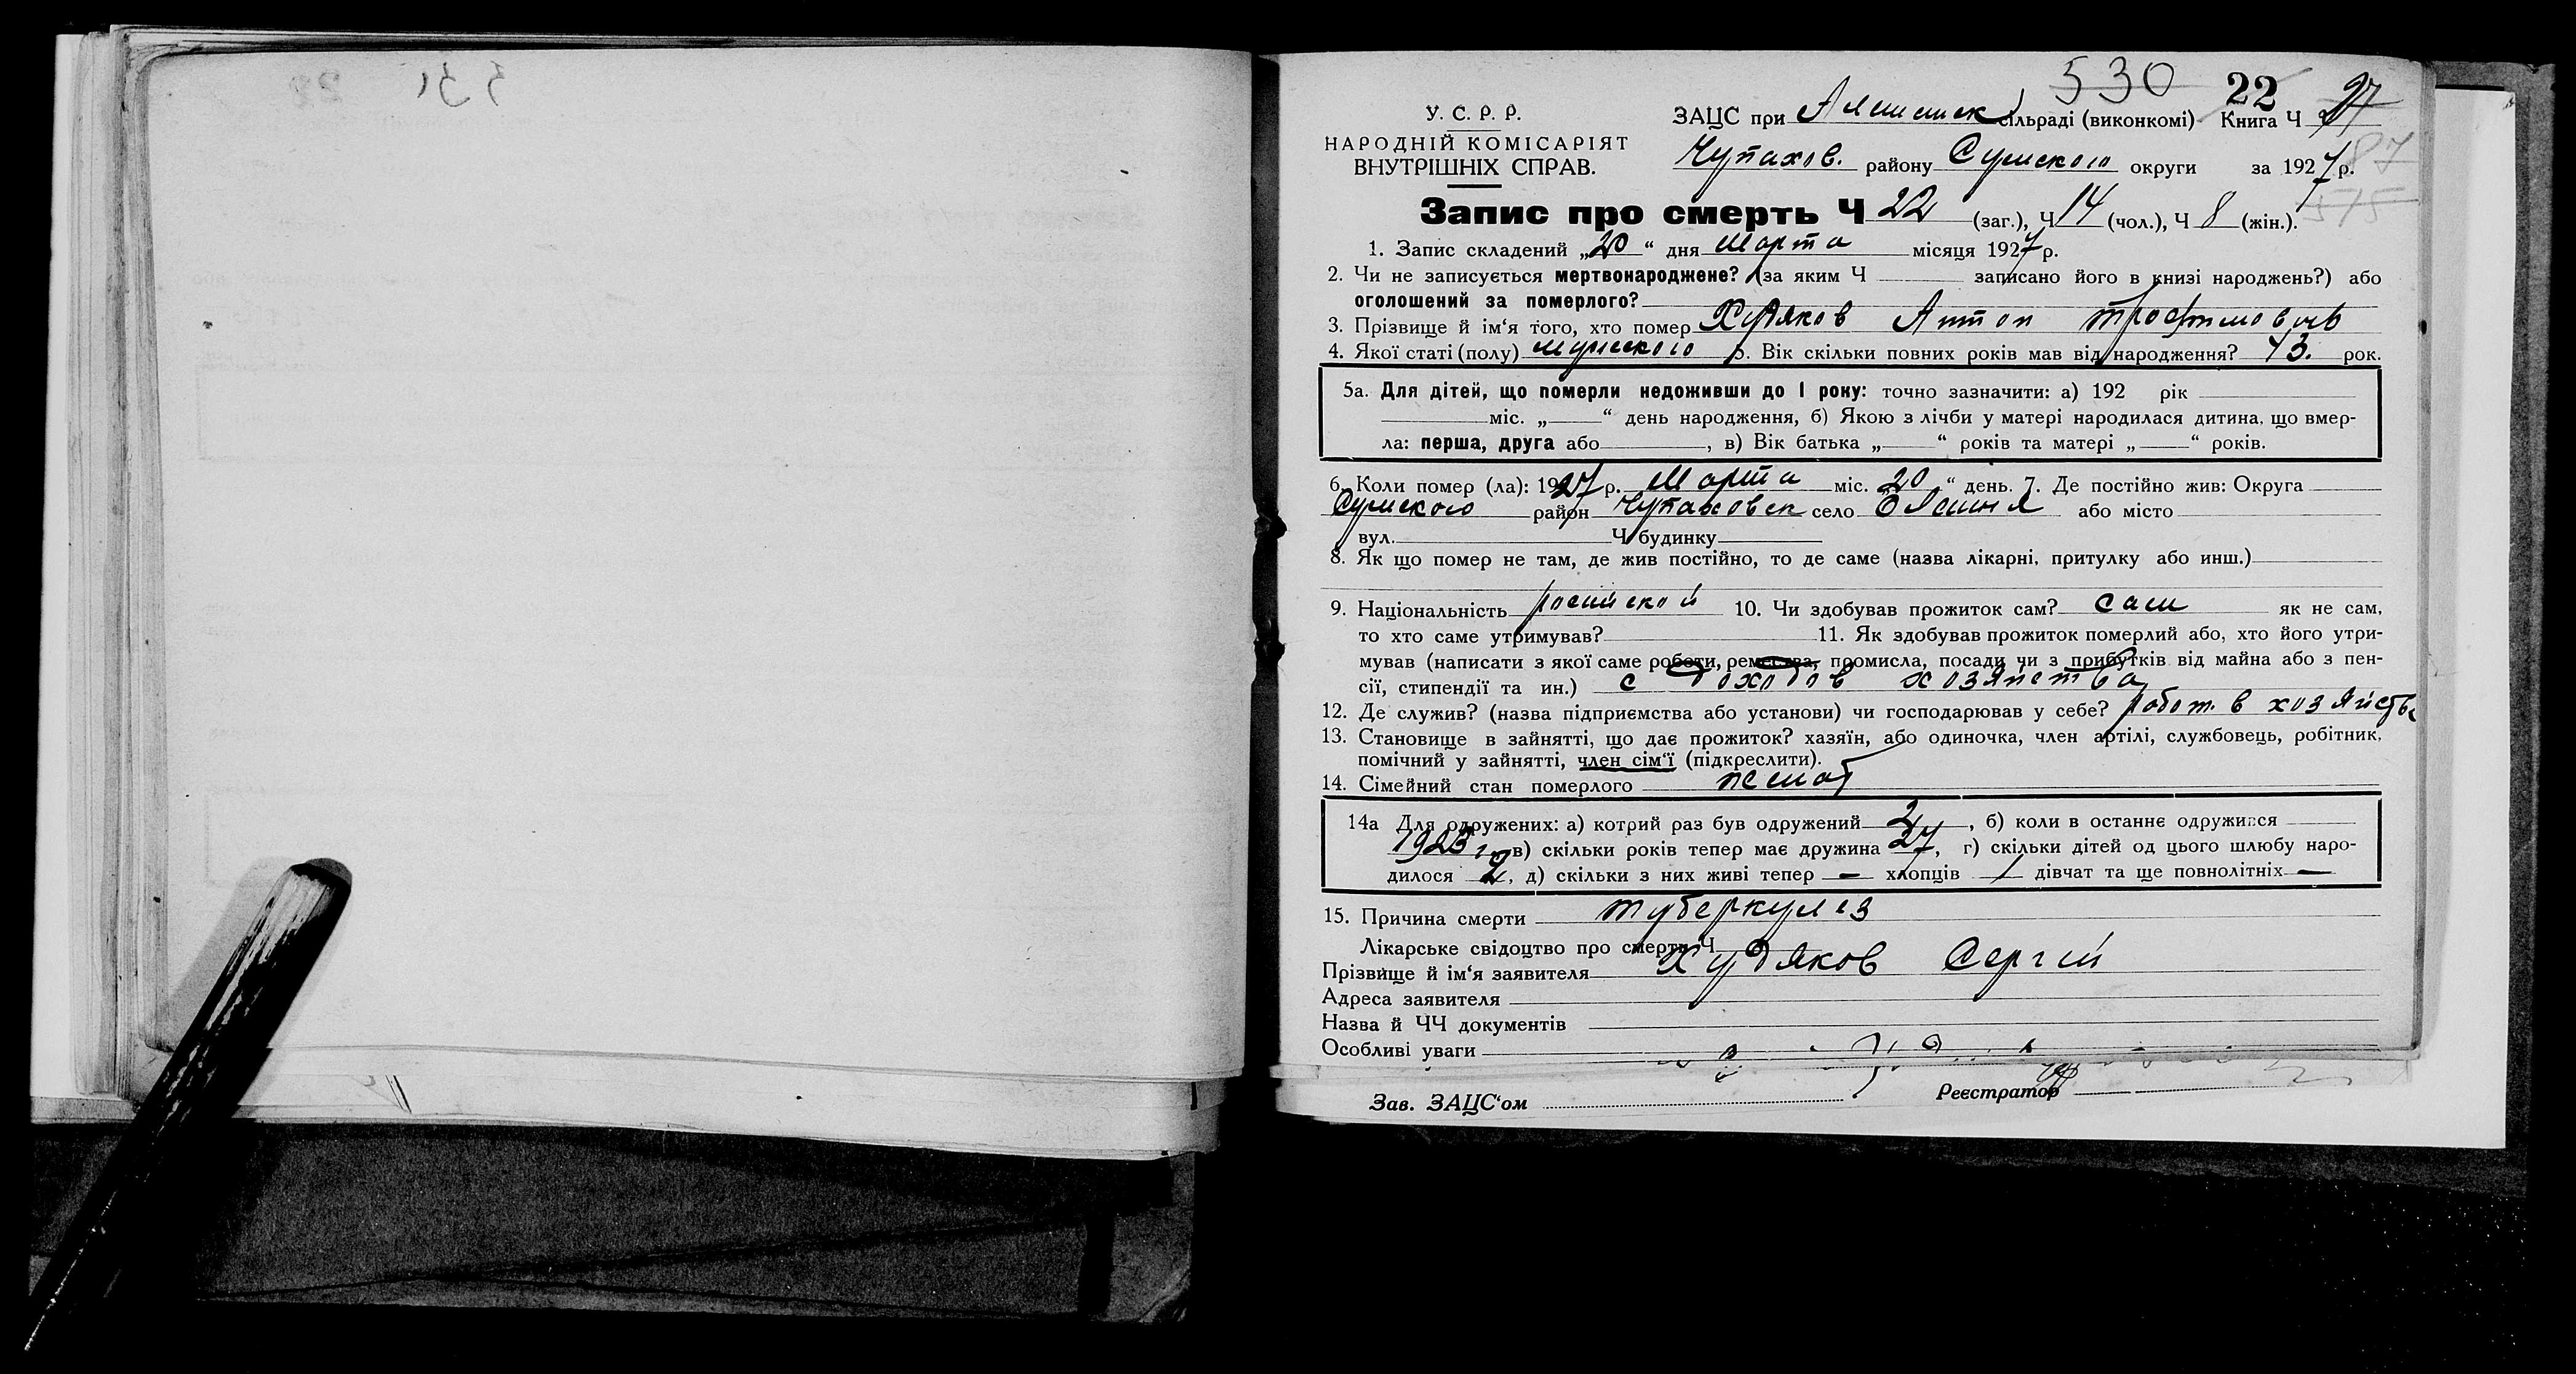 530 22 27
У. С. Р. Р.
НАРОДНІЙ КОМІСАРІЯТ
ВНУТРІШНІХ СПРАВ.
ЗАЦС при сільраді (виконкомі) Книга Ч
Чупахов. району Сумского округи за 1927 р.
87
515
Запис про смерть Ч 22 (заг.), Ч 14 (чол.), Ч 8 (жін.).
1. Запис складений „20“ дня Марта місяця 1927 р.
2. Чи не записується мертвонароджене? (за яким Ч записано його в книзі народжень?) або
оголошений за померлого?
3. Прізвище й ім‘я того, хто помер Худяков Антон Трофимович
4. Якої статі (полу) мужского 5. Вік скільки повних років мав від народження? 43. рок.
5а. Для дітей, що померли недоживши до 1 року: точно зазначити: а) 192 рік
міс. „ “ день народження, б) Якою з лічби у матері народилася дитина, що вмер-
ла: перша, друга або , в) Вік батька „ “ років та матері „ “ років.
6. Коли помер (ла): 1927 р. Марта міс. 20 “ день. 7. Де постійно жив: Округа
Сумского район Чупаховск село або місто
вул. Ч будинку
8. Як що помер не там, де жив постійно, то де саме (назва лікарні, притулку або инш.)
9. Національність росийской 10. Чи здобував прожиток сам? сам як не сам,
то хто саме утримував? 11. Як здобував прожиток померлий або, хто його утри-
мував (написати з якої саме роботи, ремества, промисла, посади чи з прибутків від майна або з пен-
сії, стипендії та ин.) с доходов хозяйства
12. Де служив? (назва підприємства або установи) чи господарював у себе? работ. в хозяйстве
13. Становище в зайнятті, що дає прожиток? хазяїн, або одиночка, член артілі, службовець, робітник,
помічний у зайнятті, член сім‘ї (підкреслити).
14. Сімейний стан померлого женат
14а Для одружених: а) котрий раз був одружений 2, б) коли в останнє одружився
1923 г. в) скільки років тепер має дружина 27, г) скільки дітей од цього шлюбу наро-
дилося 2, д) скільки з них живі тепер — хлопців 1 дівчат та ще повнолітніх —
15. Причина смерти туберкулез
Лікарське свідоцтво про смерть Ч
Прізвище й ім‘я заявителя Худяков Сергей
Адреса заявителя
Назва й ЧЧ документів
Особливі уваги
Зав. ЗАЦС‘ом Реєстратор